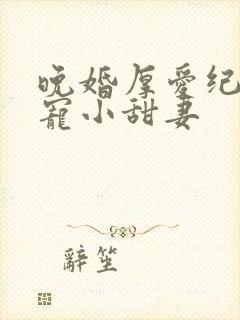 晚婚厚愛纪
寵小甜妻
辭笙